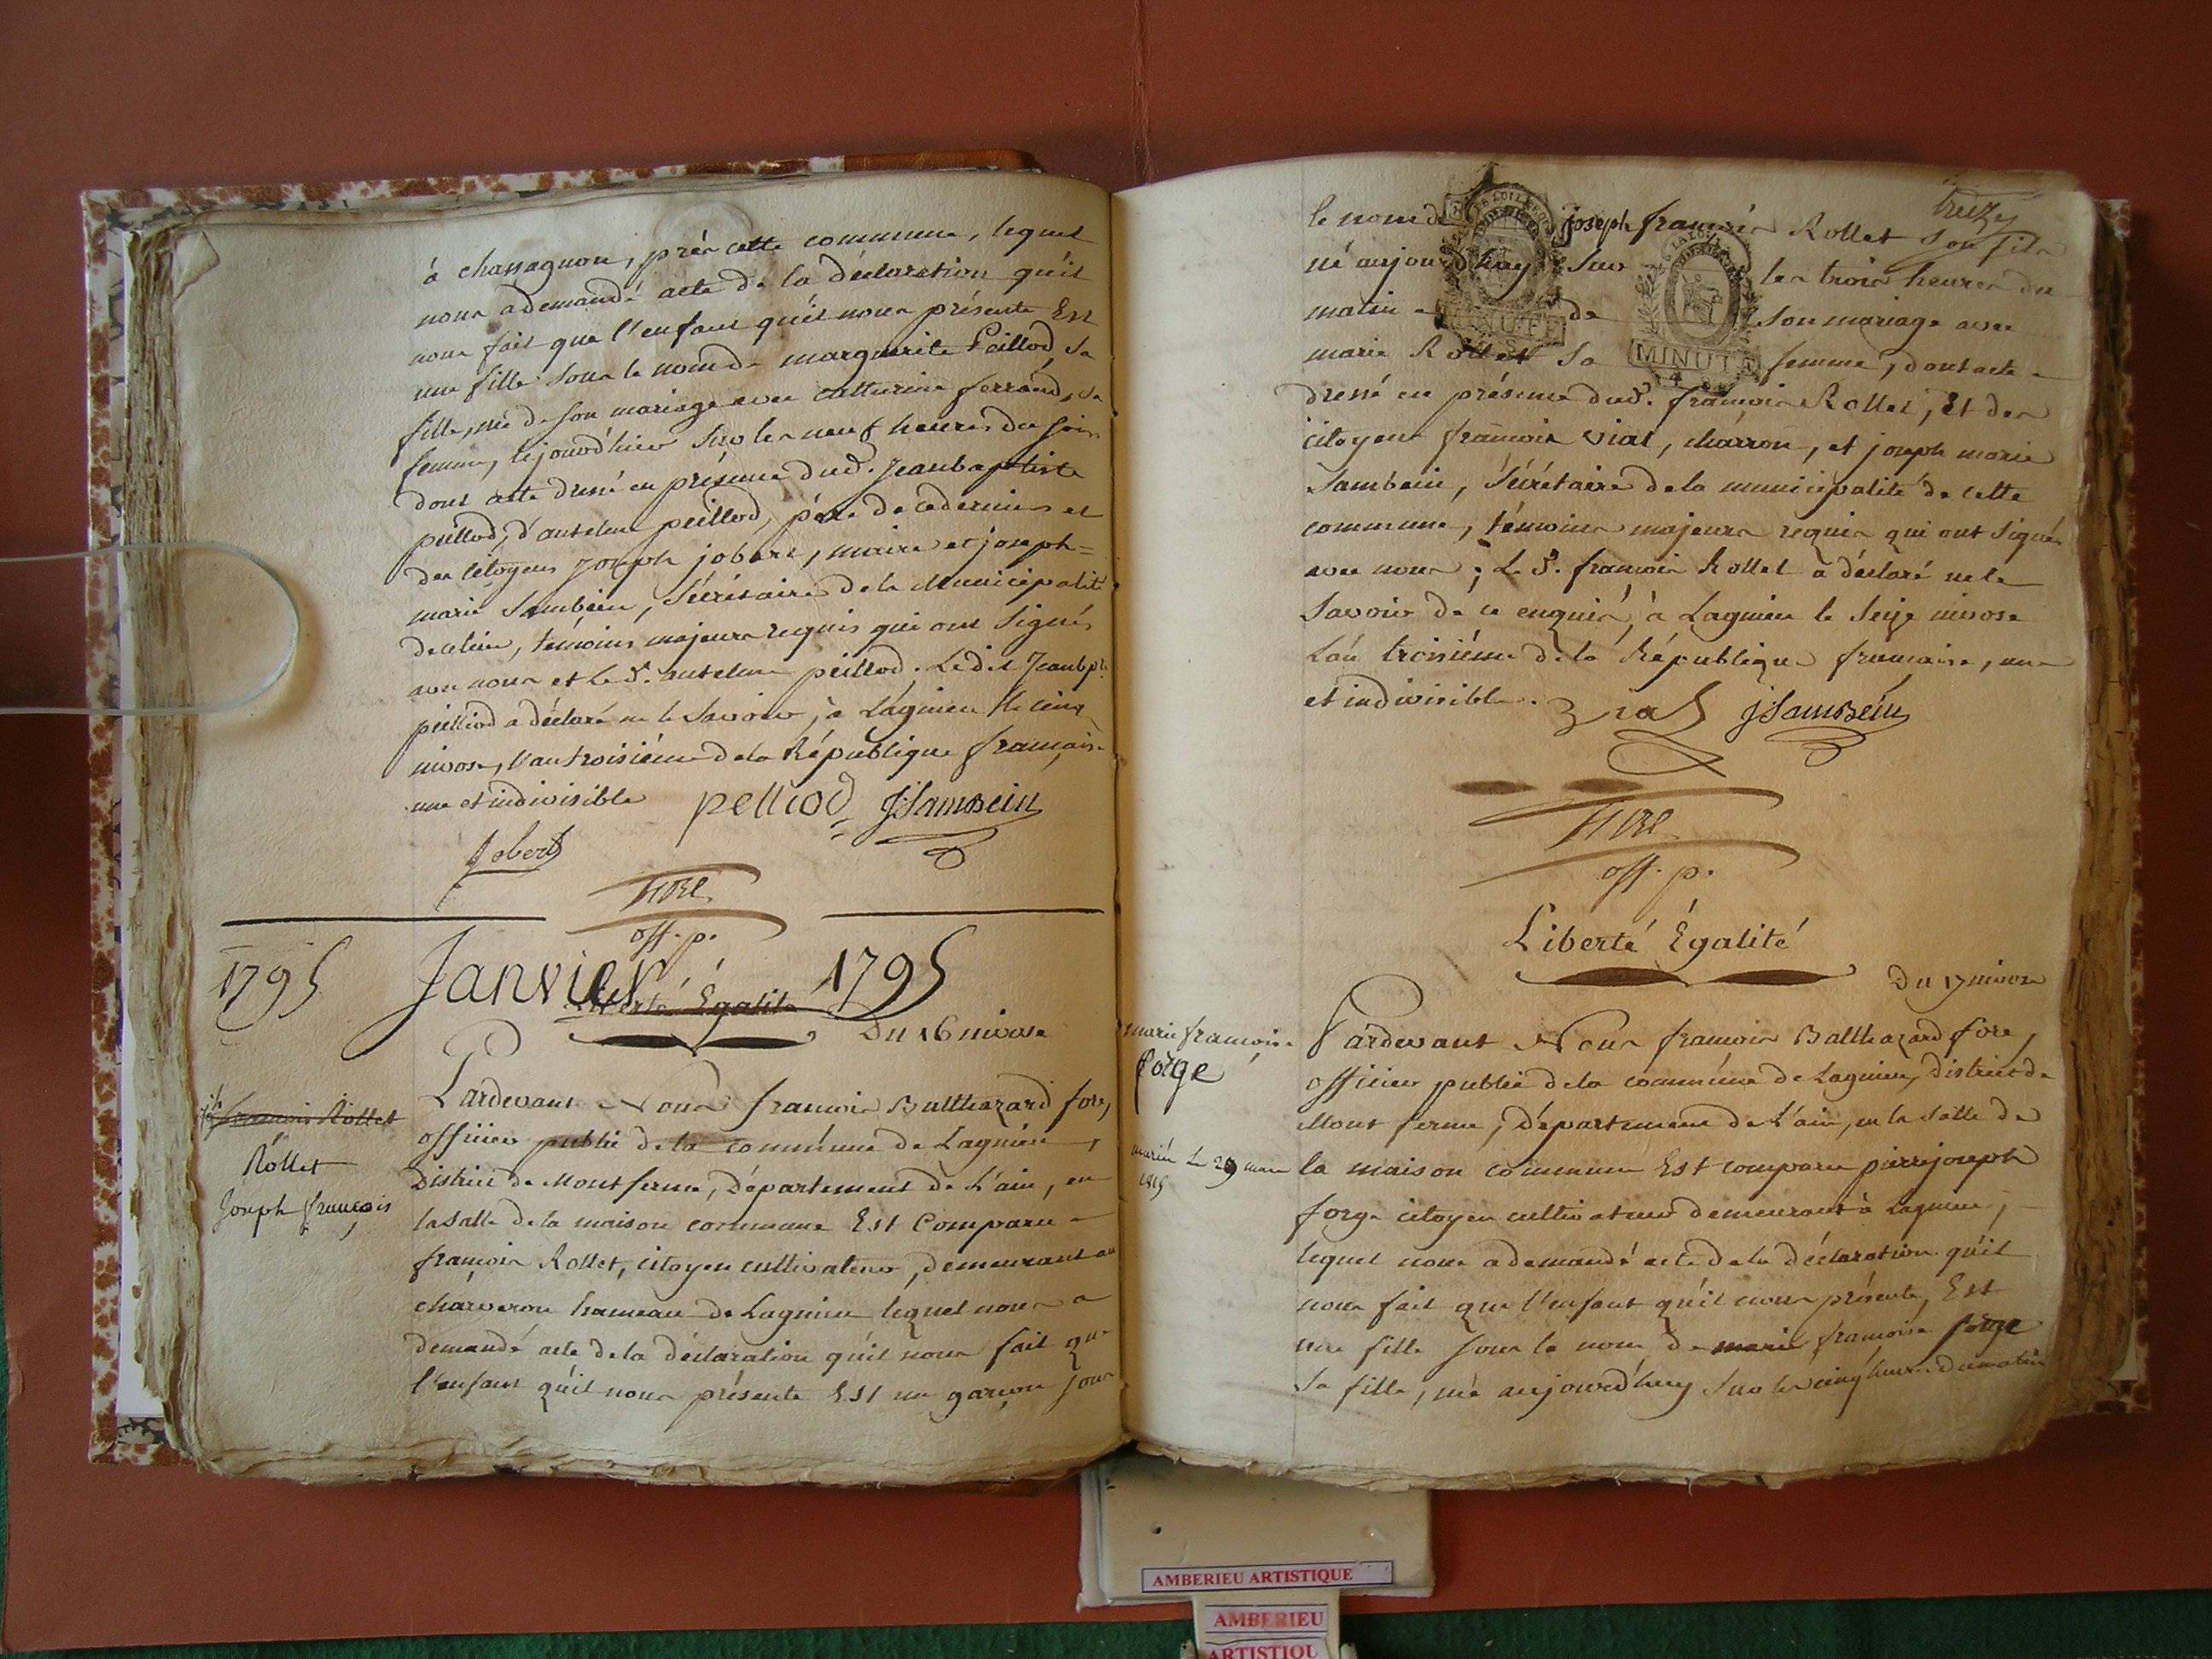 à chassagnon, près cette commune, lequel
nous a demandé acte de la déclaration qu'il
nous fait que l'enfant qu'il nous présente Est
une fille sous le nom de marguerite Peillod, sa
fille, né de son mariage avec catherine ferrand, sa
femme, le jourd'hier sur les neuf heures du soir
dont acte dressé en présence dud. Jean baptiste
peillod, d'antelme peillod, père de ce dernier et
des citoyens Joseph jobert, maire et joseph =
marie Sambein, Sécrétaire de la Municipalité
de ce lieu, témoins majeurs requis qui ont Signés
avec nous et Le S. antelme peillod. Ledit Jean bpte
peillod a déclaré ne le Savoir, à Lagnieu le cinq
nivose, l'an troisième de la République française
une et indivisible pelliod JSambein
Jobert
fore
off. p.
1795 Janvier 1795
Liberté Égalité
Du 16 nivose
françois Rollet
Rollet
Joseph françois
Pardevant Nous françois Balthazard fore,
officier public de la commune de Lagnieu,
District de Montferme, Département de L'ain, en
la salle de la maison commune Est Comparu
françois Rollet, citoyen cultivateur, demeurant au
charveron hameau de Lagnieu lequel nous a
demandé acte de la déclaration qu'il nous fait que
l'enfant qu'il nous présente Est un garçon sous
treize
le nom de joseph françois Rollet Son fils
né aujourd'huy Sur les trois heures du
matin de son mariage avec
marie Rollet Sa femme, dont acte
MINUTE
MINUTE
dressé en présence dud. françois Rollet, Et des
citoyens françois vial, charron, et joseph marie
Sambein, Sécrétaire de la municipalité de cette
commune, témoins majeurs requis qui ont Signés
avec nous ; Le S. françois Rollet a déclaré ne le
Savoir de ce enquis, à Lagnieu le Seize nivose
L'an troisième de la République française, une
et indivisible. vial JSambein
fore
off. p.
Liberté Égalité
Du 17 nivose
marie françoise
forge
mariée Le 29 mars
1815
Pardevant Nous françois Balthazard fore,
officier public de la commune de Lagnieu, District de
Mont ferme, Département de L'ain, en la Salle de
la maison commune Est comparu pierre joseph
forge citoyen cultivateur demeurant à Lagnieu,
lequel nous a demandé acte de la déclaration qu'il
nous fait que l'enfant qu'il nous présente, Est
une fille sous le nom de marie françoise forge
Sa fille, née aujourd'huy Sur les cinq heures du matin
AMBERIEU ARTISTIQUE
AMBERIEU
ARTISTIQU